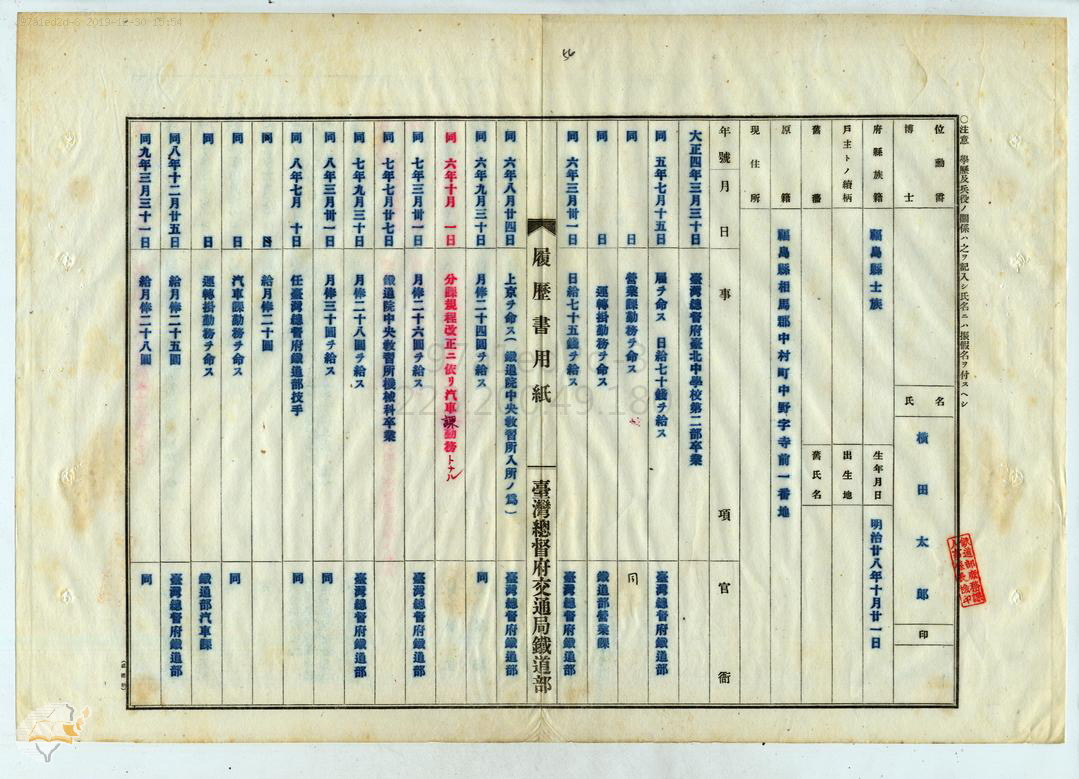 ○注意 學歷及兵役ノ關係ハ之ヲ記入シ氏名ニハ振假名ヲ付スヘシ
位勳爵
博士
氏名 橫田太郎 印
府縣族籍 福島縣士族
生年月日 明治廿八年十月廿一日
戶主トノ續柄
出生地
舊藩
舊氏名
原籍 福島縣相馬郡中村町中野字寺前一番地
現住所
年號月日 事項 官衙
大正四年三月三十日 臺灣總督府臺北中學校第二部卒業
同 五年七月十五日 雇ヲ命ス 日給七十錢ヲ給ス 臺灣總督府鐵道部
同 日 營業課勤務ヲ命ス 同
同 日 運轉掛勤務ヲ命ス 鐵道部營業課
同 六年三月卅一日 日給七十五錢ヲ給ス 臺灣總督府鐵道部
履歷書用紙 臺灣總督府交通局鐵道部
同 六年八月廿四日 上京ヲ命ス(鐵道院中央敎習所入所ノ爲) 臺灣總督府鐵道部
同 六年九月三十日 月俸二十四圓ヲ給ス 同
同 六年十月 一日 分課規程改正ニ依リ汽車課勤務トナル
同 七年三月卅一日 月俸二十六圓ヲ給ス 臺灣總督府鐵道部
同 七年七月廿七日 鐵道院中央敎習所機械科卒業
同 七年九月三十日 月俸二十八圓ヲ給ス 臺灣總督府鐵道部
同 八年三月卅一日 月俸三十圓ヲ給ス 同
同 八年七月 十日 任臺灣總督府鐵道部技手 同
同 日 給月俸二十圓
同 日 汽車課勤務ヲ命ス 同
同 日 運轉掛勤務ヲ命ス 鐵道部汽車課
同八年十二月廿五日 給月俸二十五圓 臺灣總督府鐵道部
同九年三月三十一日 給月俸二十八圓 同